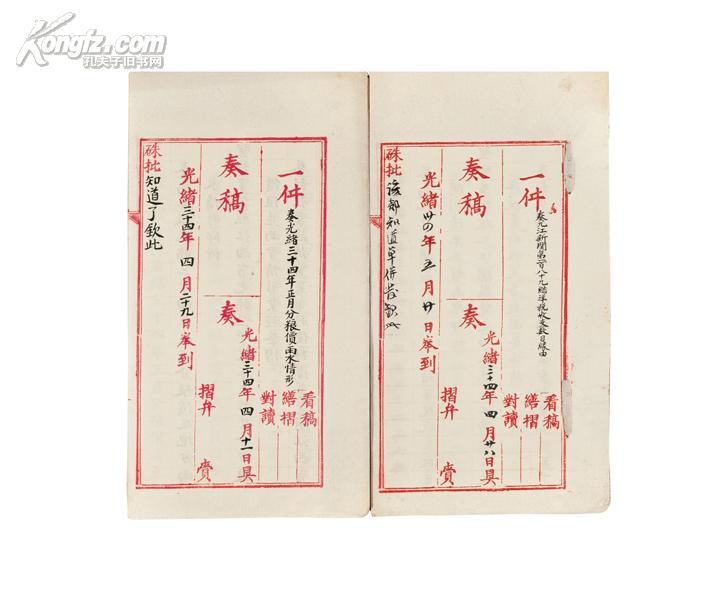 Kongfz.com
孔夫子旧书网
一件
奏九江新關第一百八十九結洋稅收支數目緣由
看稿
繕摺
對讀
奏稿
奏
光緒三十四年四月廿八日具
摺弁
賫
光緒卅四年五月廿日奉到
硃批該部知道單併發欽此
一件
奏光緒三十四年正月分粮價雨水情形
看稿
繕摺
對讀
奏稿
奏
光緒三十四年四月十一日具
摺弁
賫
光緒三十四年四月二十九日奉到
硃批知道了欽此